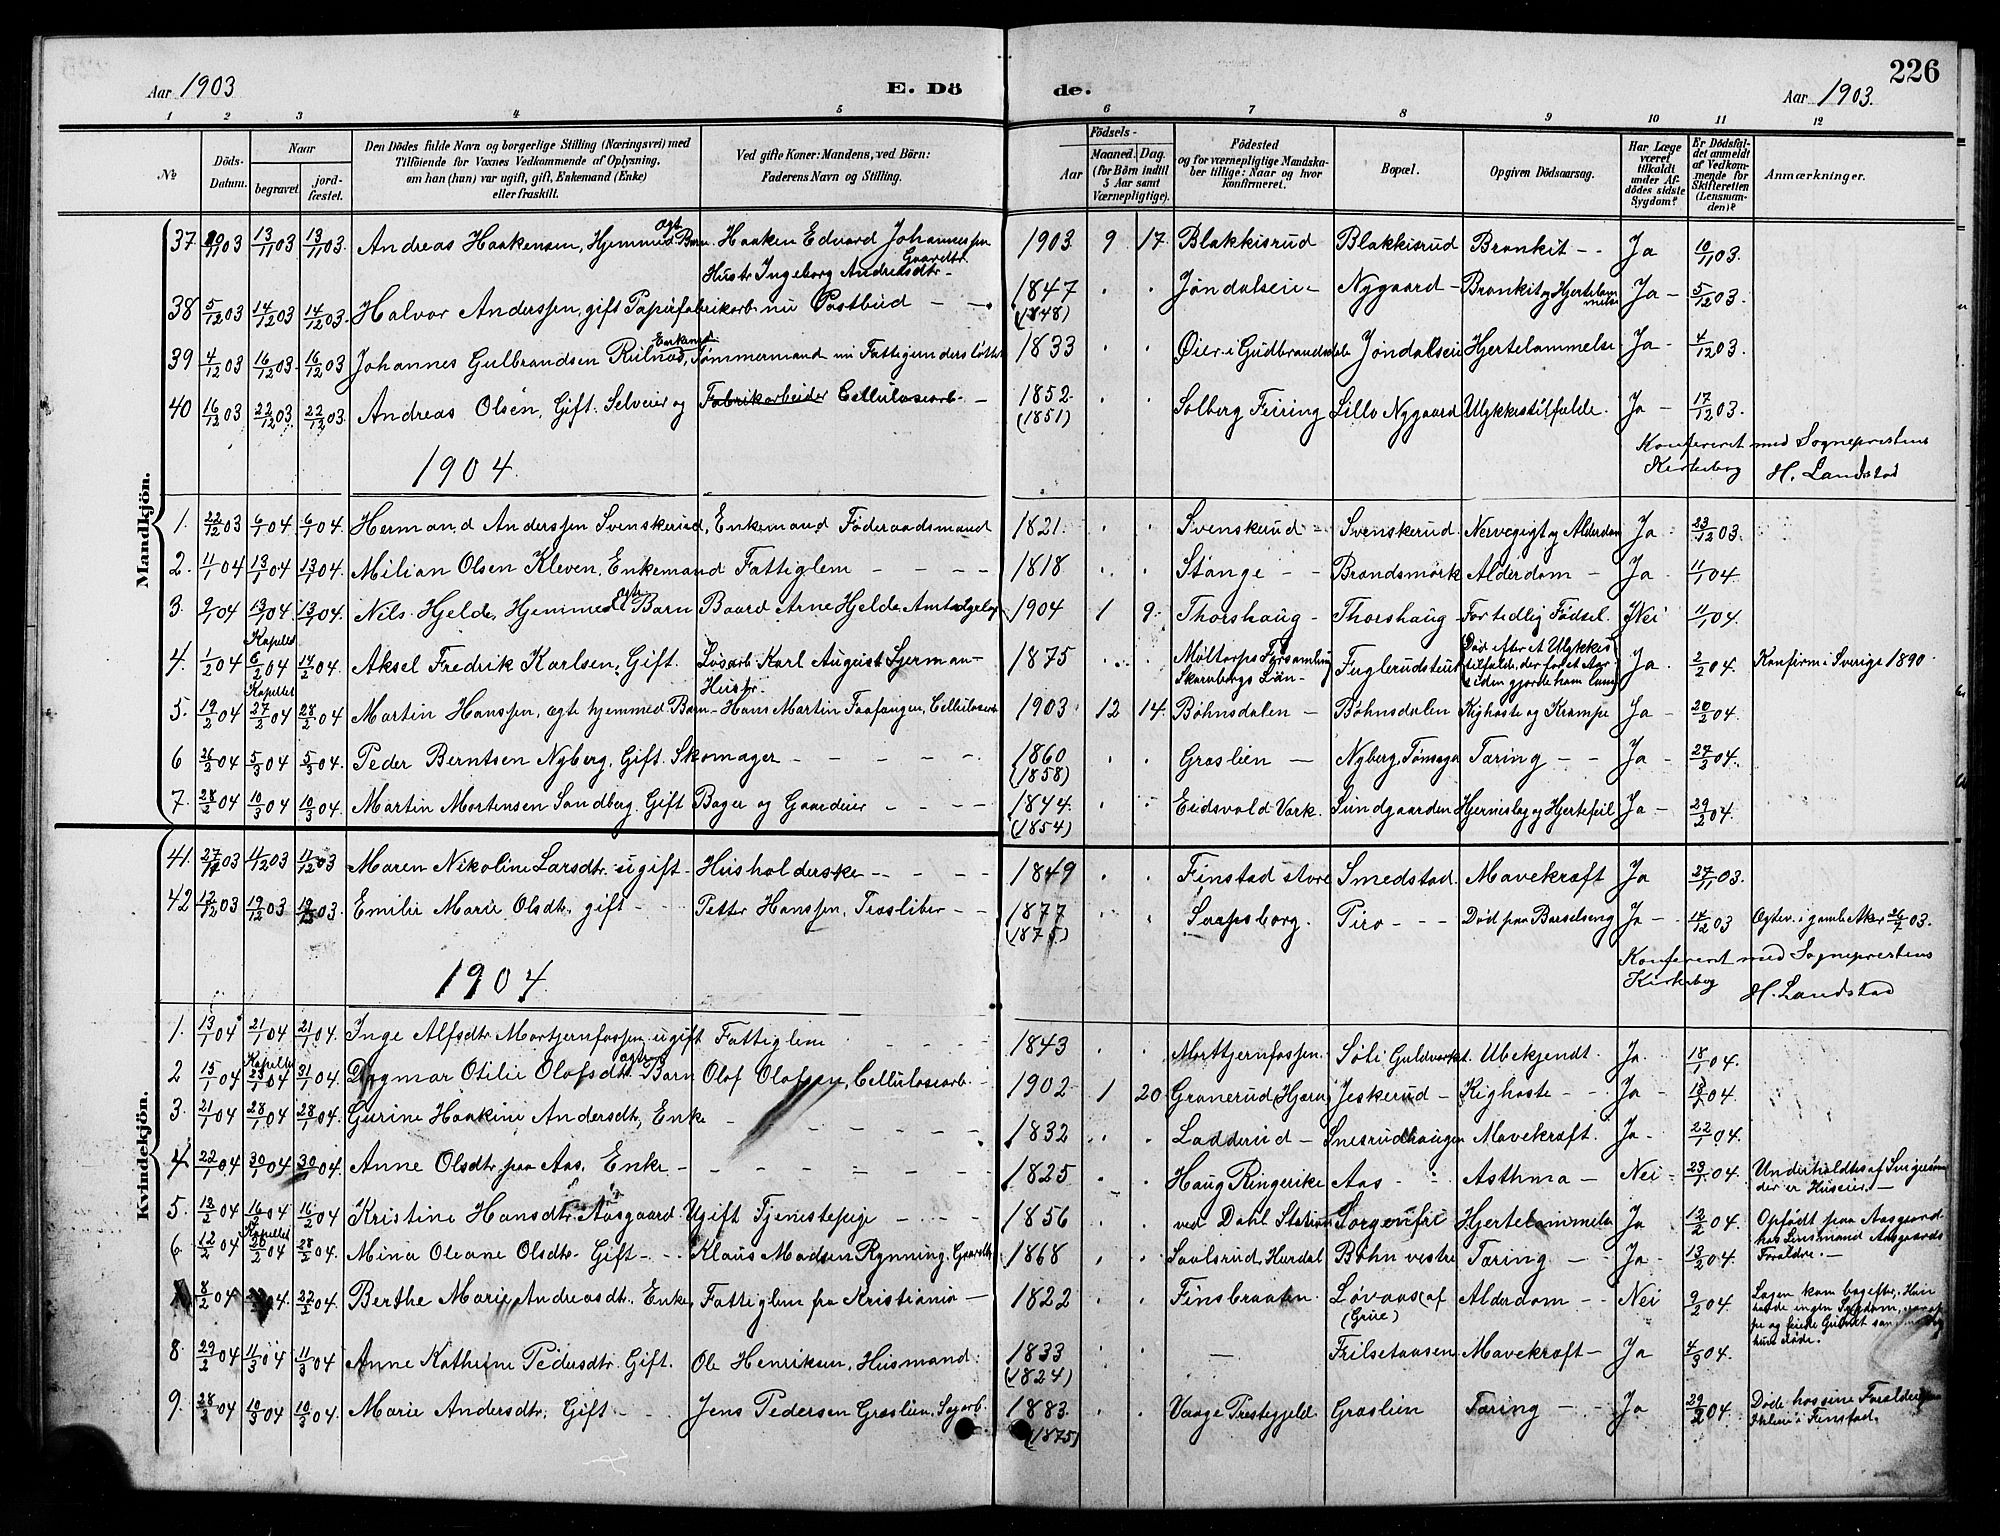 226
Aar 1903
E. Dö
de.
Aar 1903.
1 2 3 4 5 6 7 8 9 10 11 12
№
Döds-Datum.
Naar
begravet
jord-fæstet.
Den Dödes fulde Navn og borgerlige Stilling (Næringsvei) med
Tilföiende for Voxnes Vedkommende af Oplysning,
om han (hun) var ugift, gift, Enkemand (Enke)
eller fraskilt.
Ved gifte Koner: Mandens, ved Börn:
Faderens Navn og Stilling.
Födsels-
Aar
Maaned. Dag.
(for Börn indtil
5 Aar samt
Værnepligtige).
Födested
og for værnepligtige Mandska-
ber tillige: Naar og hvor
konfirmeret.
Bopæl.
Opgiven Dödsaarsag.
Har Læge
været
tilkaldt
under Af-
dödes sidste
Sygdom?
Er Dödsfal-
det anmeldt
af Vedkom-
mende for
Skifteretten
(Lensman-
den)?
Anmærkninger.
Mandkjön.
37 13/11 03 13/11 03. Andreas Haakensen, Hjemmed. ægt Barn Haaken Edvard Johannessen Gaardbr. 1903 9 17. Blakkisrud Blakkisrud Bronkit - - Ja 10/11 03.
Hustr Ingeborg Andreasdtr -
38 5/12 03 14/12 03 14/12 03. Halvor Anderssen, gift Papirfabrikarb. nu Postbud - - 1847 (1848) Jøndalseie - Nygaard - Bronkit og Hjertelammelse Ja - 5/12 03.
39 4/12 03 16/12 03 16/12 03. Johannes Gulbrandsen Enkemd Tømmermand nu Fattigunderstøttet 1833 Øier i Gudbrandsdale Jøndalseie Hjertelammelse Ja - 4/12 03.
40 16/12 03 22/12 03 22/12 03 Andreas Olsen, Gift. Selveier og Fabrikarbeider Cellulosearb. - 1852 (1851) Solberg Feiring Lille Nygaard Ulykkestilfælde. Ja - 17/12 03.
Konfereret med Sogneprestens
Kirkebog H. Landstad
1904.
1. 22/12 03 6/1 04 6/1 04. Hermand Anderssen Svenskerud, Enkemand Føderaadsmand 1821. Svenskerud - Svenskerud. Nervegigt og Alderdom Ja - 23/12 03.
2. 11/1 04 13/1 04 13/1 04. Milian Olsen Kleven, Enkemand Fattiglem - - - - 1818 Stange - - Brandsmørk Alderdom - Ja - 11/1 04.
3. 9/1 04 13/1 04 13/1 04. Nils Hjelde, Hjemmed ægte Barn Baard Arne Hjelde, 1904 1 9. Thorshaug - Thorshaug - For tidlig Fødsel. Nei 11/1 04.
4. 1/2 04 Kapellet 6/2 04 14/2 04. Aksel Fredrik Karlsen, Gift. Løsarb Karl August Sjerman - Hustr. 1875 Møltorps Forsamling Skarabergs Län - Fuglerudsteut Død efter et Ulykkes tilfælde, der for et Aar siden gjorde ham lam Ja - 2/2 04. Konfirm i Sverige 1890
5. 19/2 04 Kapellet 27/2 04 28/2 04 Martin Hanssen, ægte hjemmed Barn - Hans Martin Faafangen, Cellulosearb. 1903 12 14. Bøhnsdalen - Bøhnsdalen Kighoste og Krampe Ja - 20/2 04.
6 26/2 04 5/3 04 5/3 04. Peder Berntsen Nyberg, Gift. Skomager - - - - - 1860 (1858) Græslien - Nyberg Tønsaga Tæring - - Ja - 27/2 04.
7. 28/2 04 10/3 04 10/3 04. Martin Mortensen Sandberg. Gift Bager og Gaardeier - - - - 1844 (1854) Eidsvold Værk. Sundgaarden Hjerneslag og Hjertefeil Ja - 29/2 04.
Kvindekjön.
41. 27/11 03 4/12 03 Maren Nikoline Larsdtr. ugift - Husholderske - - - - 1849 Finstad store Smedstad. Mavekræft Ja 27/11 03.
42 13/12 03 19/12 03 19/12 03. Emilie Marie Olsdtr. gift - - Petter Hanssen, Træsliber - - 1877 (1875) Sarpsborg. Piro - - - Død paa Barselseng Ja - - 14/12 03 Ægtev. i gamle Aker 26/7 03.
Konfereret med Sogneprestens
Kirkebog H. Landstad
1904.
1. 13/1 04 21/1 04 21/1 04 Inge Alfsdtr Mortjernfossen ugift Fattiglem - - - 1843 Morttjernfossen. Søli Guldverket. Ubekjendt. Ja 18/1 04.
2 15/1 04 Kapellet 23/1 04 31/1 04. Dagmar Otilie Olofsdtr. ægte Barn Olof Olofsen, Cellulosearb. - 1902 1 20. Granerud Jeskerud - Kighoste - - Ja - 18/1 04.
3. 21/1 04 28/1 04 28/1 04. Gurine Haakine Andersdtr, Enke - - - - - 1832 Ladderud - Snesrudhaugen Mavekræft. Ja - 22/1 04.
4. 22/1 04 30/1 04 30/1 04. Anne Olsdtr. paa Aas, Enke - - - - - - 1825 Haug Ringerike Aas - - Asthma - Nei - 23/1 04. Underholdtes af Svigersøn der er Huseier. -
5. 12/2 04 16/2 04 16/2 04 Kristine Hansdtr. Aasgaard Ugift Tjenestepige - - - 1856 ved Dahl Station Sorgenfri Hjertelammelse Ja 12/2 04. Opfødt paa Aasgaard hos Lensmand Aasgaards Foraldre. -
6 12/2 04 Kapellet 20/2 04 28/2 04. Mina Oleane Olsdtr. Gift - - Klaus Madsen Rynning, Gaardbr. 1868 Saalsrud, Hurdal Bøhn vestre Tæring - Ja - 13/2 04.
8/2 04 04. 22/2 04. Berthe Marie Andreasdtr. Enke, Fattiglem fra Kristiania - 1822 Finsbraaten. Løvaas (af Grue) Alderdom - - Nei 9/2 04. Lægen kom bagefter, Hun havde ingen Sygdom,
8. 29/2 04 11/3 04 11/3 04 Anne Kathrine Pedersdtr. Gift. Ole Henriksen, Husmand. 1833 (1824) - Frilsetaasen Mavekræft - Ja 4/3 04.
9. 28/2 04 10/3 04 10/3 04. Marie Andersdtr. Gift - - Jens Pedersen Græslien, Sagarb. 1883. (1875) Vaage Prestegjeld Græslien Tæring - - Ja 29/2 04. Døde hos sine Foraldre i Finstad.